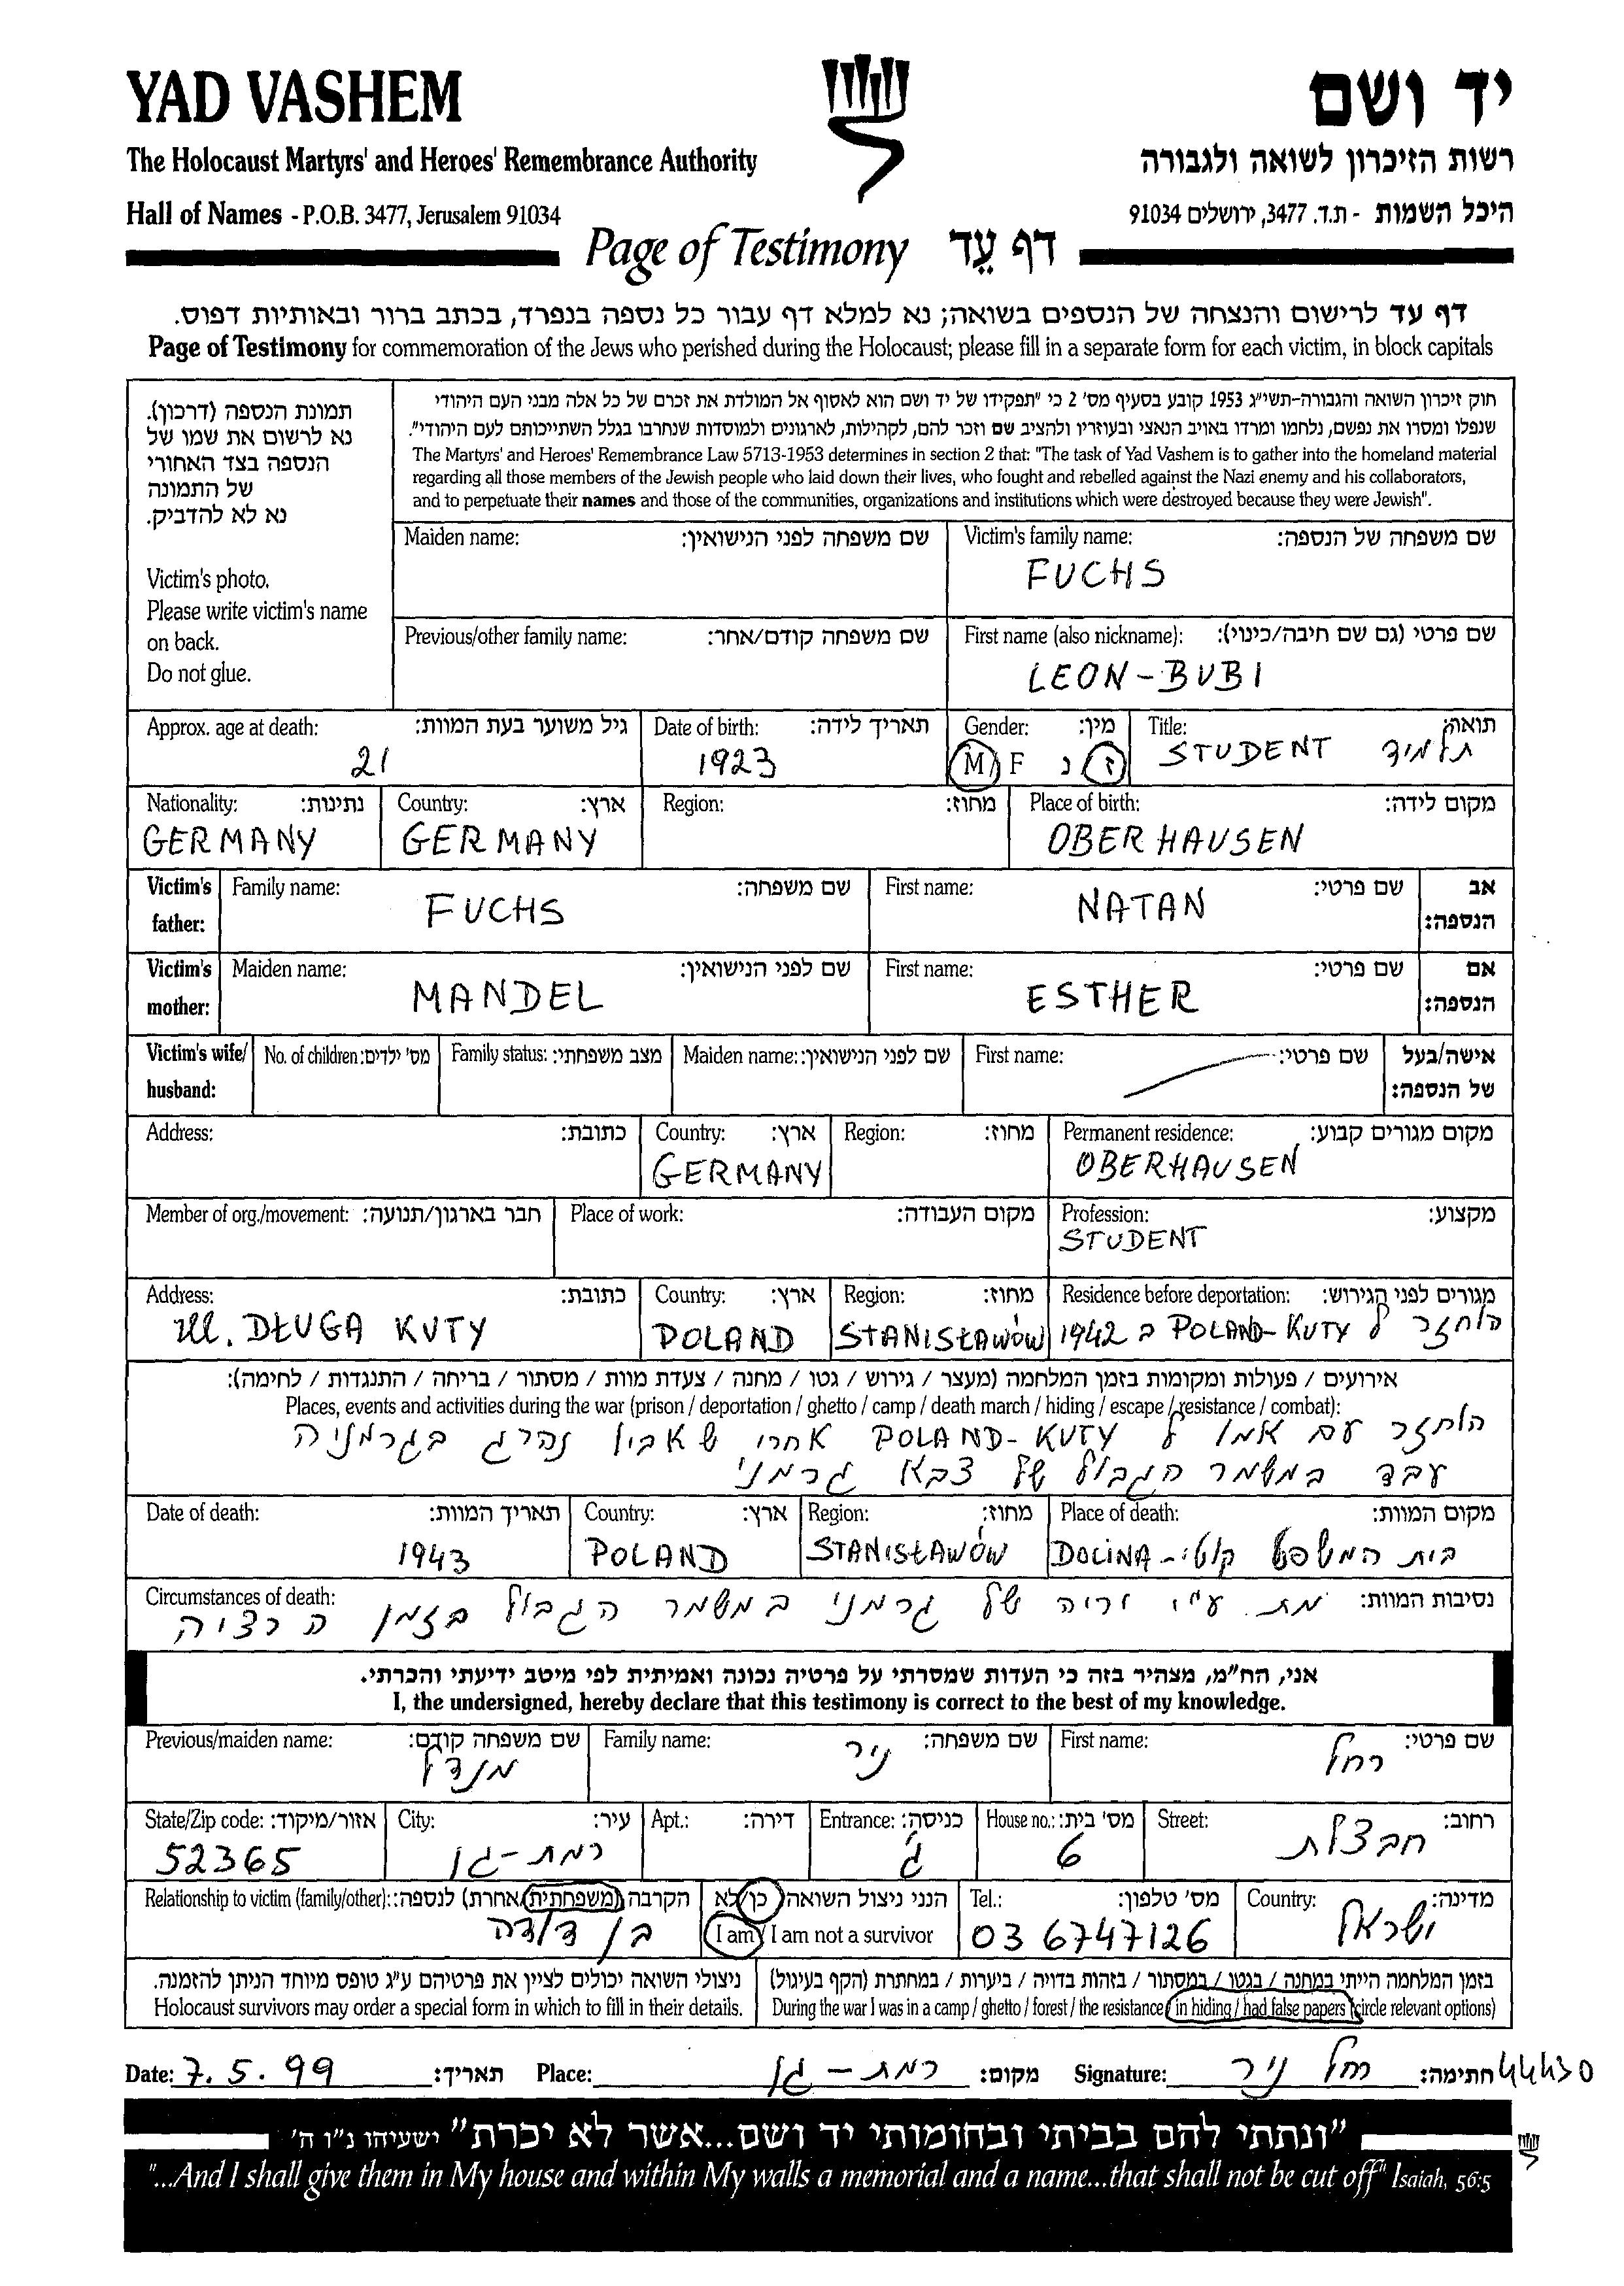 YAD VASHEM
יד ושם
The Holocaust Martyrs' and Heroes' Remembrance Authority
רשות הזיכרון לשואה ולגבורה
Hall of Names - P.O.B. 3477, Jerusalem 91034
היכל השמות - ת.ד. 3477, ירושלים 91034
Page of Testimony דף עֵד
דף עד לרישום והנצחה של הנספים בשואה; נא למלא דף עבור כל נספה בנפרד, בכתב ברור ובאותיות דפוס.
Page of Testimony for commemoration of the Jews who perished during the Holocaust; please fill in a separate form for each victim, in block capitals
תמונת הנספה (דרכון).
נא לרשום את שמו של
הנספה בצד האחורי
של התמונה
נא לא להדביק.
Victim's photo.
Please write victim's name
on back.
Do not glue.
חוק זיכרון השואה והגבורה-תשי"ג 1953 קובע בסעיף מס' 2 כי "תפקידו של יד ושם הוא לאסוף אל המולדת את זכרם של כל אלה מבני העם היהודי
שנפלו ומסרו את נפשם, נלחמו ומרדו באויב הנאצי ובעוזריו ולהציב שם וזכר להם, לקהילות, לארגונים ולמוסדות שנחרבו בגלל השתייכותם לעם היהודי".
The Martyrs' and Heroes' Remembrance Law 5713-1953 determines in section 2 that: "The task of Yad Vashem is to gather into the homeland material
regarding all those members of the Jewish people who laid down their lives, who fought and rebelled against the Nazi enemy and his collaborators,
and to perpetuate their names and those of the communities, organizations and institutions which were destroyed because they were Jewish".
Maiden name: שם משפחה לפני הנישואין:
Victim's family name: שם משפחה של הנספה:
FUCHS
Previous/other family name: שם משפחה קודם/אחר:
First name (also nickname): שם פרטי (גם שם חיבה/כינוי):
LEON-BUBI
Approx. age at death: גיל משוער בעת המוות:
21
Date of birth: תאריך לידה:
1923
Gender: מין:
M/F ז/נ
Title: תואר:
STUDENT תלמיד
Nationality: נתינות:
GERMANY
Country: ארץ:
GERMANY
Region: מחוז:
Place of birth: מקום לידה:
OBERHAUSEN
Victim's father: אב הנספה:
Family name: שם משפחה:
FUCHS
First name: שם פרטי:
NATAN
Victim's mother: אם הנספה:
Maiden name: שם לפני הנישואין:
MANDEL
First name: שם פרטי:
ESTHER
Victim's wife/husband: אישה/בעל של הנספה:
No. of children: מס' ילדים:
Family status: מצב משפחתי:
Maiden name: שם לפני הנישואין:
First name: שם פרטי:
Address: כתובת:
Country: ארץ:
GERMANY
Region: מחוז:
Permanent residence: מקום מגורים קבוע:
OBERHAUSEN
Member of org./movement: חבר בארגון/תנועה:
Place of work: מקום העבודה:
Profession: מקצוע:
STUDENT
Address: כתובת:
ul. DŁUGA KUTY
Country: ארץ:
POLAND
Region: מחוז:
STANISŁAWÓW
Residence before deportation: מגורים לפני הגירוש:
הוחזר ל POLAND-KUTY ב 1942
אירועים / פעולות ומקומות בזמן המלחמה (מעצר / גירוש / גטו / מחנה / צעדת מוות / מסתור / בריחה / התנגדות / לחימה):
Places, events and activities during the war (prison / deportation / ghetto / camp / death march / hiding / escape / resistance / combat):
הוחזר עם אמו ל POLAND-KUTY אחרי שאביו נהרג בגרמניה
עבד במשמר הגבול של צבא גרמני
Date of death: תאריך המוות:
1943
Country: ארץ:
POLAND
Region: מחוז:
STANISŁAWÓW
Place of death: מקום המוות:
בית המשפט קוטי-DOLINA
Circumstances of death: נסיבות המוות:
מת ע"י יריה של גרמני במשמר הגבול בזמן
אני, הח"מ, מצהיר בזה כי העדות שמסרתי על פרטיה נכונה ואמיתית לפי מיטב ידיעתי והכרתי.
I, the undersigned, hereby declare that this testimony is correct to the best of my knowledge.
Previous/maiden name: שם משפחה קודם:
מנדל
Family name: שם משפחה:
ניר
First name: שם פרטי:
רחל
State/Zip code: אזור/מיקוד:
52365
City: עיר:
רמת-גן
Apt.: דירה:
Entrance: כניסה:
ג'
House no.: מס' בית:
6
Street: רחוב:
חבצלת
Relationship to victim (family/other): הקרבה (משפחתית/אחרת) לנספה:
בן דודה
הנני ניצול השואה כן/לא
I am / I am not a survivor
Tel.: מס' טלפון:
03 6747126
Country: מדינה:
ישראל
ניצולי השואה יכולים לציין את פרטיהם ע"ג טופס מיוחד הניתן להזמנה.
Holocaust survivors may order a special form in which to fill in their details.
בזמן המלחמה הייתי במחנה / בגטו / במסתור / בזהות בדויה / ביערות / במחתרת (הקף בעיגול)
During the war I was in a camp / ghetto / forest / the resistance / in hiding / had false papers (circle relevant options)
Date: 7.5.99 תאריך: Place: רמת-גן מקום: Signature: רחל ניר חתימה: 44430
"ונתתי להם בביתי ובחומותי יד ושם...אשר לא יכרת" ישעיהו נ"ו ה'
"...And I shall give them in My house and within My walls a memorial and a name...that shall not be cut off" Isaiah, 56:5